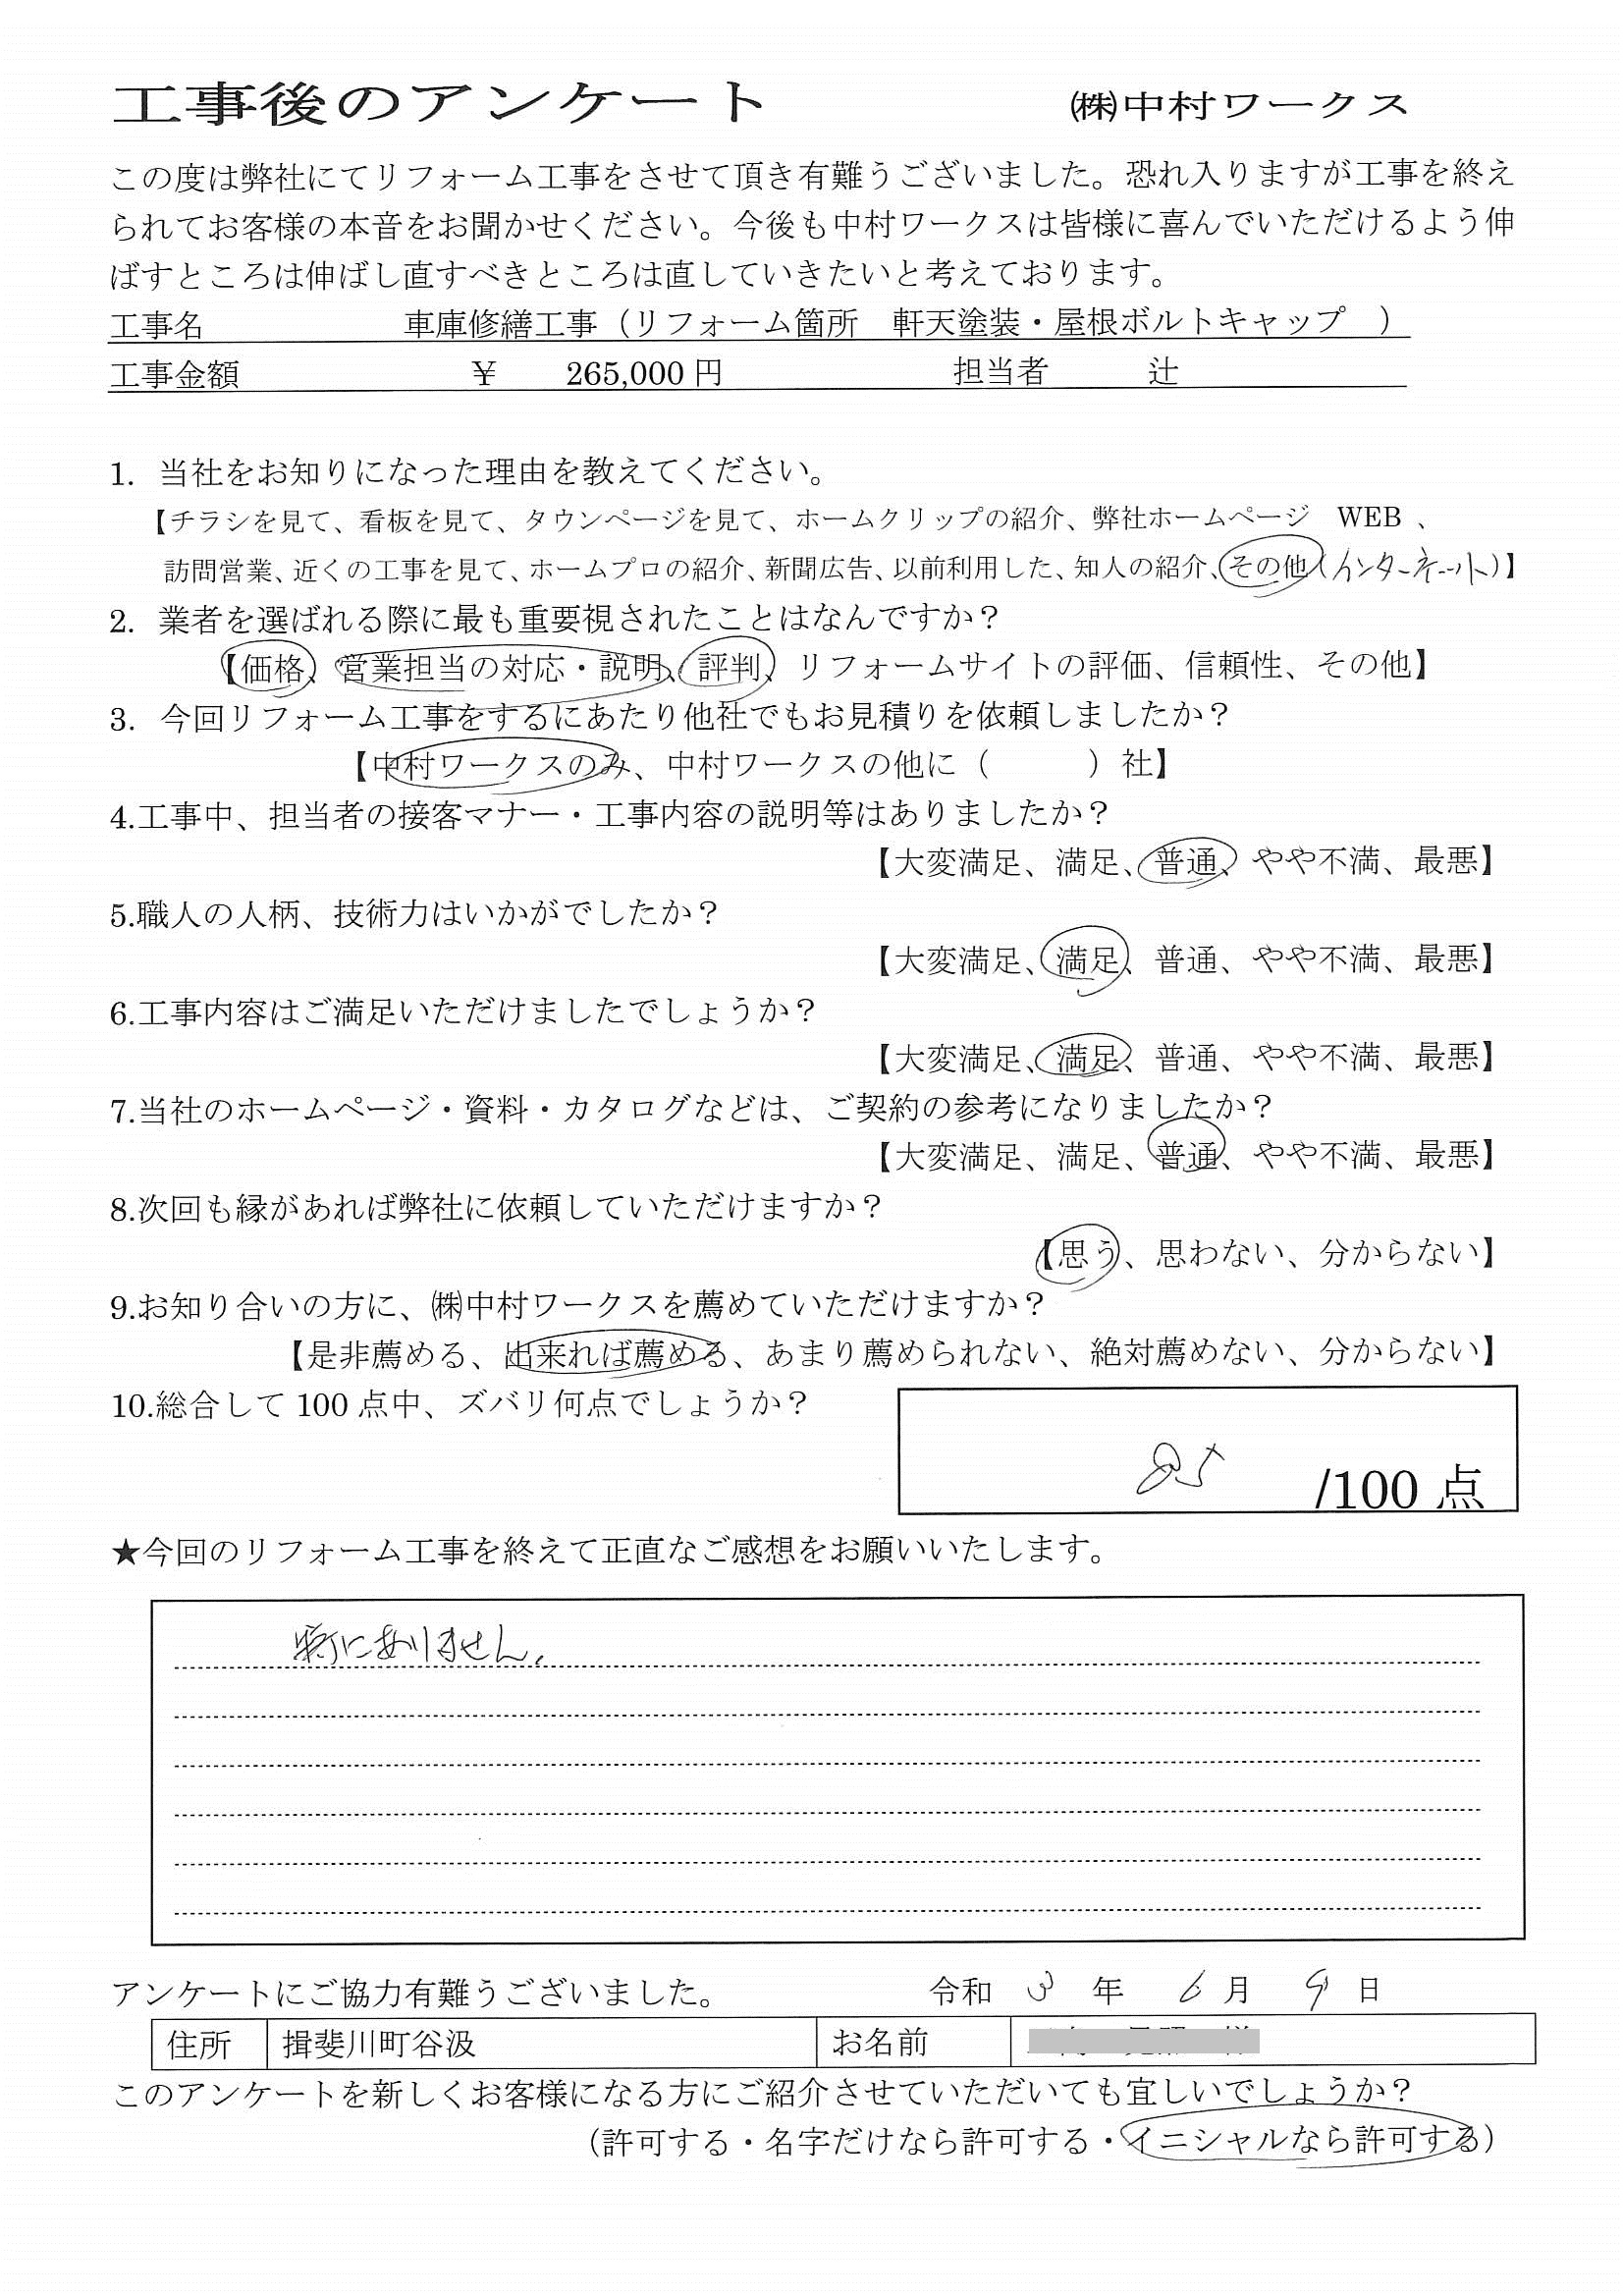 工事後のアンケート ㈱中村ワークス
この度は弊社にてリフォーム工事をさせて頂き有難うございました。恐れ入りますが工事を終え
られてお客様の本音をお聞かせください。今後も中村ワークスは皆様に喜んでいただけるよう伸
ばすところは伸ばし直すべきところは直していきたいと考えております。
工事名 車庫修繕工事（リフォーム箇所 軒天塗装・屋根ボルトキャップ ）
工事金額 ¥ 265,000 円 担当者 辻
1. 当社をお知りになった理由を教えてください。
【チラシを見て、看板を見て、タウンページを見て、ホームクリップの紹介、弊社ホームページ WEB 、
訪問営業、近くの工事を見て、ホームプロの紹介、新聞広告、以前利用した、知人の紹介、その他（インターネット）】
2. 業者を選ばれる際に最も重要視されたことはなんですか？
【価格、営業担当の対応・説明、評判、リフォームサイトの評価、信頼性、その他】
3. 今回リフォーム工事をするにあたり他社でもお見積りを依頼しましたか？
【中村ワークスのみ、中村ワークスの他に（ ）社】
4.工事中、担当者の接客マナー・工事内容の説明等はありましたか？
【大変満足、満足、普通、やや不満、最悪】
5.職人の人柄、技術力はいかがでしたか？
【大変満足、満足、普通、やや不満、最悪】
6.工事内容はご満足いただけましたでしょうか？
【大変満足、満足、普通、やや不満、最悪】
7.当社のホームページ・資料・カタログなどは、ご契約の参考になりましたか？
【大変満足、満足、普通、やや不満、最悪】
8.次回も縁があれば弊社に依頼していただけますか？
【思う、思わない、分からない】
9.お知り合いの方に、㈱中村ワークスを薦めていただけますか？
【是非薦める、出来れば薦める、あまり薦められない、絶対薦めない、分からない】
10.総合して 100 点中、ズバリ何点でしょうか？
85 /100 点
★今回のリフォーム工事を終えて正直なご感想をお願いいたします。
特にありません.
アンケートにご協力有難うございました。 令和 3 年 6 月 9 日
住所 揖斐川町谷汲 お名前
このアンケートを新しくお客様になる方にご紹介させていただいても宜しいでしょうか？
（許可する・名字だけなら許可する・イニシャルなら許可する）